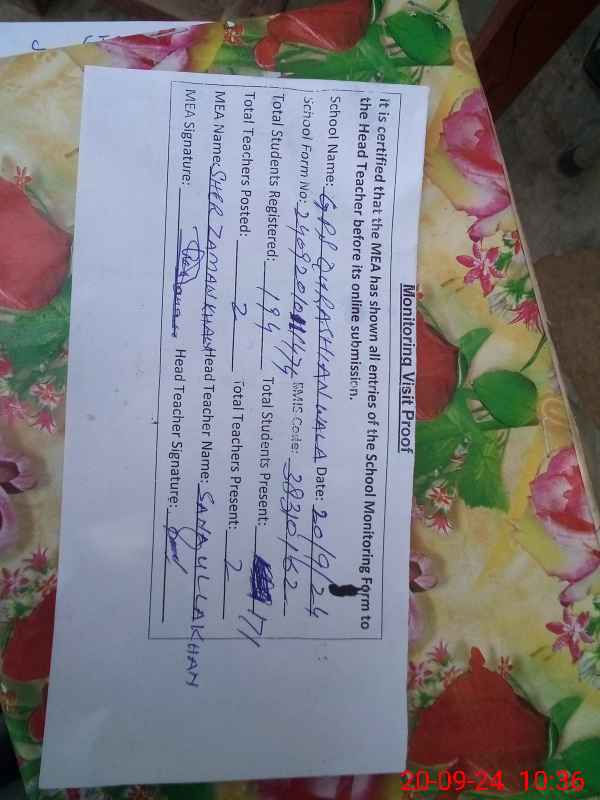 Monitoring Visit Proof
It is certified that the MEA has shown all entries of the School Monitoring Form to
the Head Teacher before its online submission.
School Name: GPS QURAISHIANWALA Date: 20/9/24
School Form No: 24092010 1474 EMIS Code: 38310162
Total Students Registered: 194 Total Students Present: 171
Total Teachers Posted: 2 Total Teachers Present: 2
MEA Name: SHER ZAMAN KHAN Head Teacher Name: SANAULLAKHAN
MEA Signature: Head Teacher Signature:
20-09-24 10:36